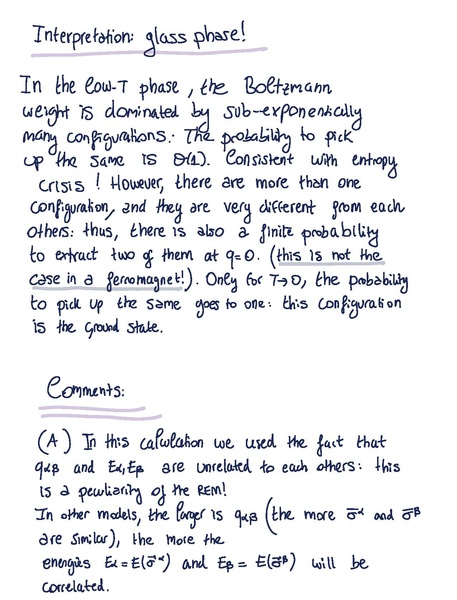 Interpretation: glass phase!
In the low-T phase, the Boltzmann
weight is dominated by sub-exponentially
many configurations. The probability to pick
up the same is O(1). Consistent with entropy
crisis! However, there are more than one
configuration, and they are very different from each
others: thus, there is also a finite probability
to extract two of them at q=0. (this is not the
case in a ferromagnet!). Only for T→0, the probability
to pick up the same goes to one: this configuration
is the ground state.
Comments:
(A) In this calculation we used the fact that
qαβ and Eα,Eβ are unrelated to each others: this
is a peculiarity of the REM!
In other models, the larger is qαβ (the more σ⃗^α and σ⃗^β
are similar), the more the
energies Eα=E(σ⃗^α) and Eβ=E(σ⃗^β) will be
correlated.